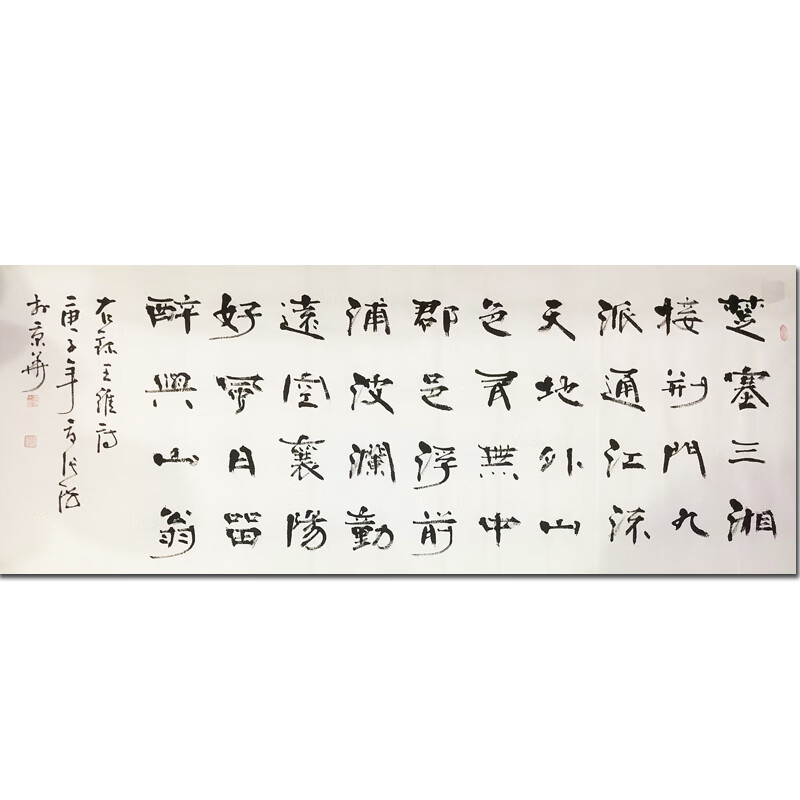 楚塞三湘
接荆門九
派通江流
天地外山
色有無中
郡邑浮前
浦波瀾動
遠空襄陽
好風日留
醉與山翁
右錄王維詩
庚子年
於京華